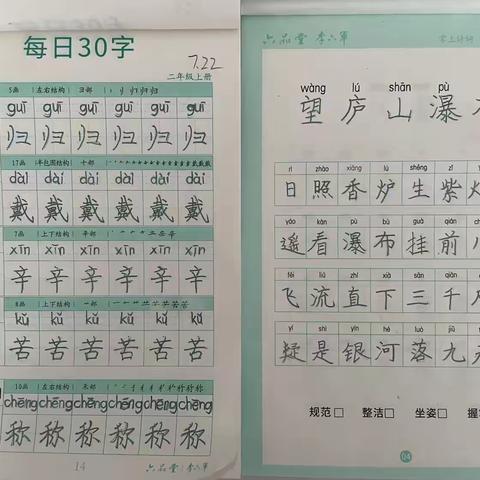 每日30字
7.22
二年级上册
5画 左右结构 彐部
guī guī guī guī guī guī
归 归 归 归 归 归
17画 半包围结构 十部
dài dài dài dài dài dài
戴 戴 戴 戴 戴 戴
7画 上下结构 辛部
xīn xīn xīn xīn xīn xīn
辛 辛 辛 辛 辛 辛
8画 上下结构
kǔ kǔ kǔ kǔ kǔ kǔ
苦 苦 苦 苦 苦 苦
10画 左右结构 禾部
chēng chēng chēng chēng chēng chēng
称 称 称 称 称 称
14 六品堂 李六军
六品堂 李六军
wàng lú shān pù
望 庐 山 瀑
rì zhào xiāng lú shēng zǐ
日 照 香 炉 生 紫
yáo kàn pù bù guà qián
遥 看 瀑 布 挂 前
fēi liú zhí xià sān qiān
飞 流 直 下 三 千
yí shì yín hé luò jiǔ
疑 是 银 河 落 九
规范□ 整洁□ 坐姿□ 握
04